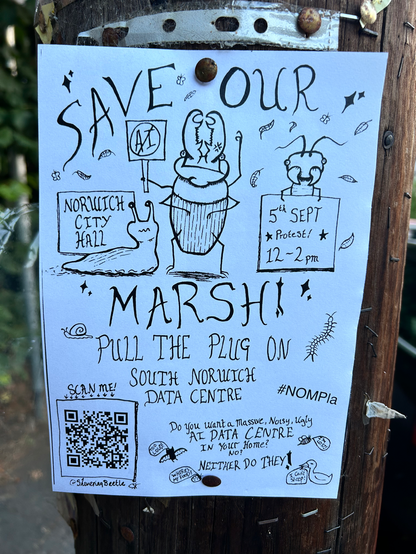 SAVE OUR
AI
NORWICH
CITY
HALL
5th SEPT
Protest!
12-2pm
MARSH!
PULL THE PLUG ON
SOUTH NORWICH
DATA CENTRE
#NOMPla
SCAN ME!
Do you want a Massive, Noisy, Ugly
AI DATA CENTRE
IN Your Home?
NO!
NEITHER DO THEY!
@SlaveringBeetle